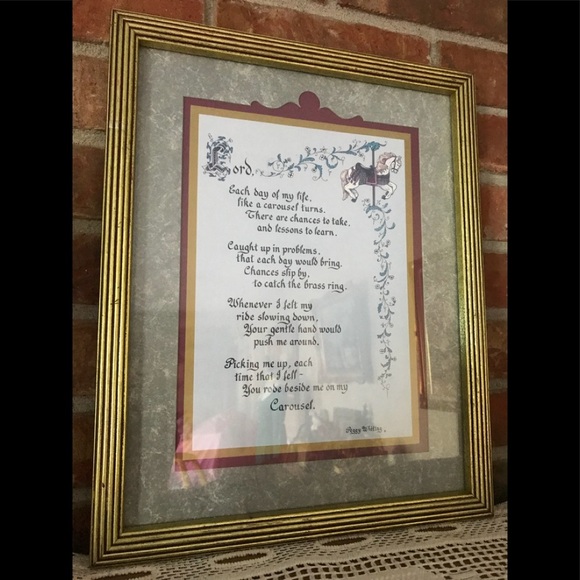 Lord,
Each day of my life,
like a carousel turns.
There are chances to take,
and lessons to learn.
Caught up in problems,
that each day would bring.
Chances slip by,
to catch the brass ring.
Whenever I felt my
ride slowing down,
Your gentle hand would
push me around.
Picking me up, each
time that I fell-
You rode beside me on my
Carousel.